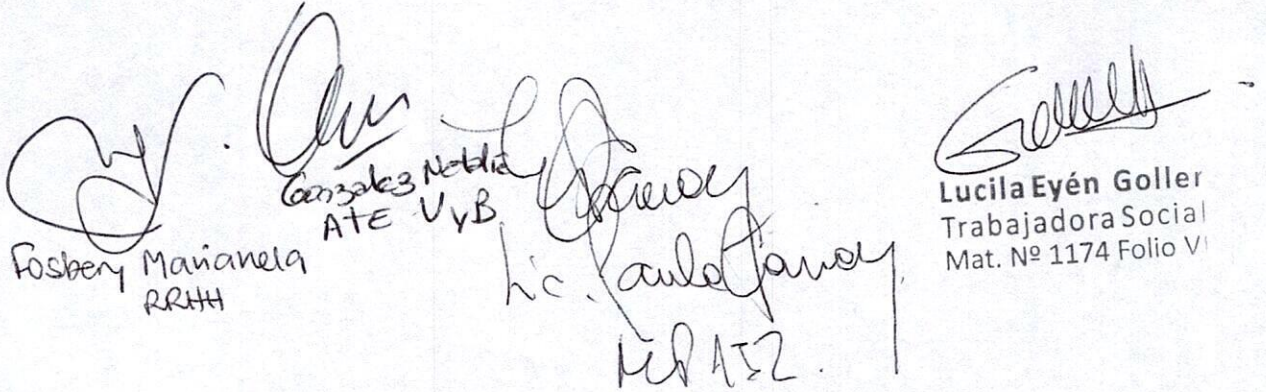 Fosbery Marianela
RRHH
Gonzalez Natalia
ATE VyB
Lic. Paula
MP 152.
Lucila Eyén Goller
Trabajadora Social
Mat. Nº 1174 Folio VI